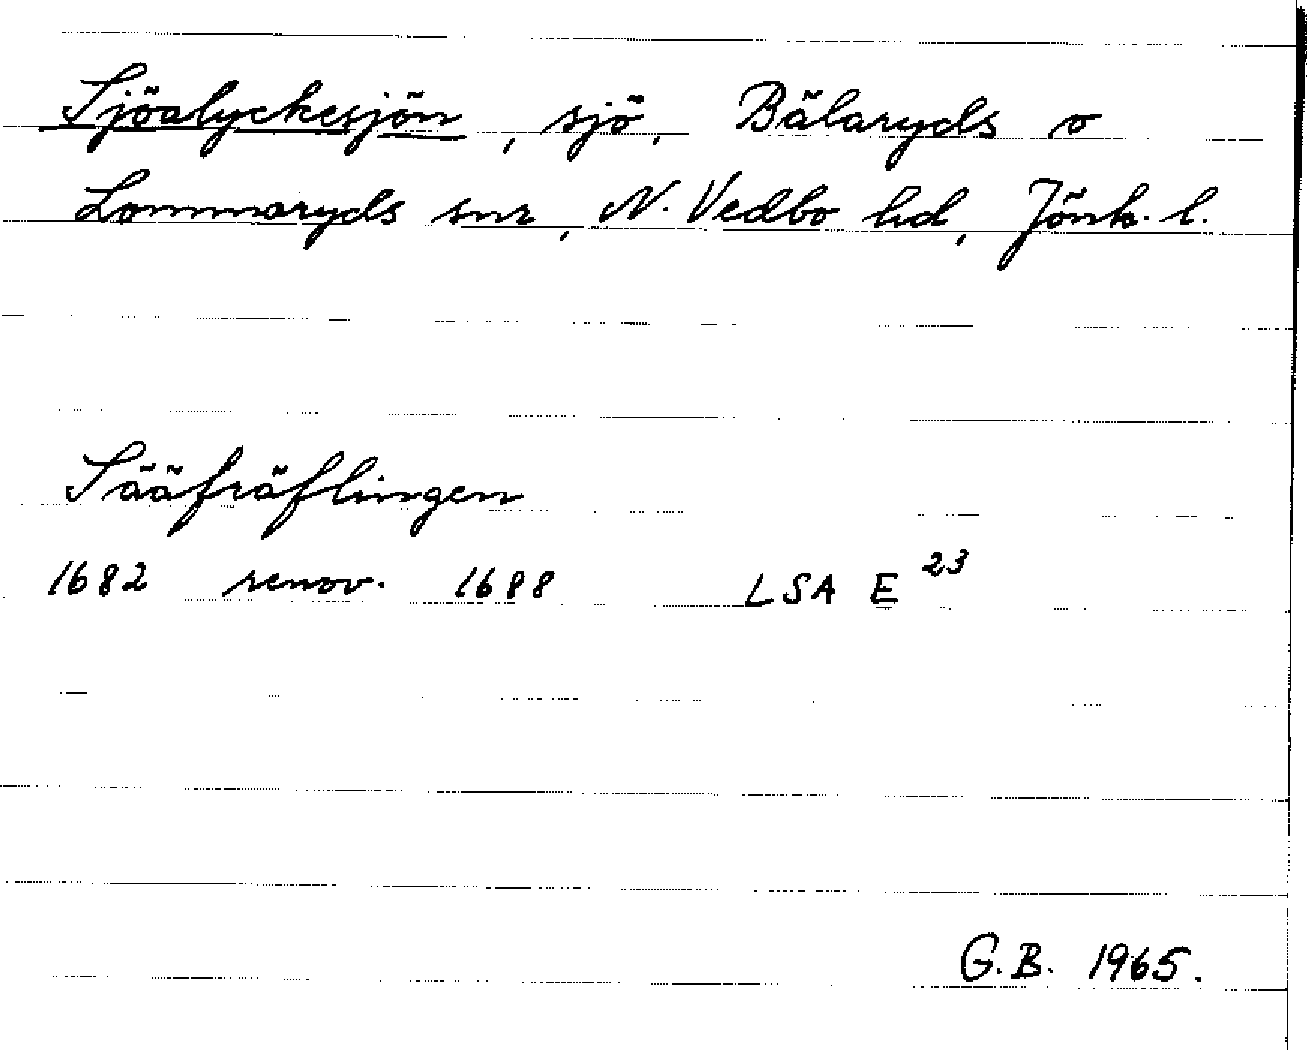 Sjöalyckesjön, sjö, Bälaryds o
Lommaryds snr, N. Vedbo hd, Jönk. l.
Sääfräflingen
1682 renov. 1688 LSA E 23
G.B. 1965.